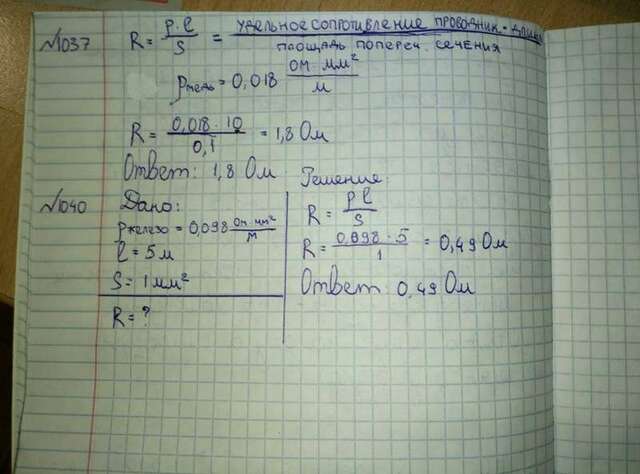 №1037
R = ρ·l / S = удельное сопротивление проводник·длин / площадь попереч. сечения
ρмедь = 0,018 Ом мм² / м
R = 0,018 · 10 / 0,1 = 1,8 Ом
Ответ: 1,8 Ом
№1040 Дано:
ρжелезо = 0,098 Ом мм² / м
l = 5 м
S = 1 мм²
R = ?
Решение:
R = ρ l / S
R = 0,098 · 5 / 1 = 0,49 Ом
Ответ: 0,49 Ом